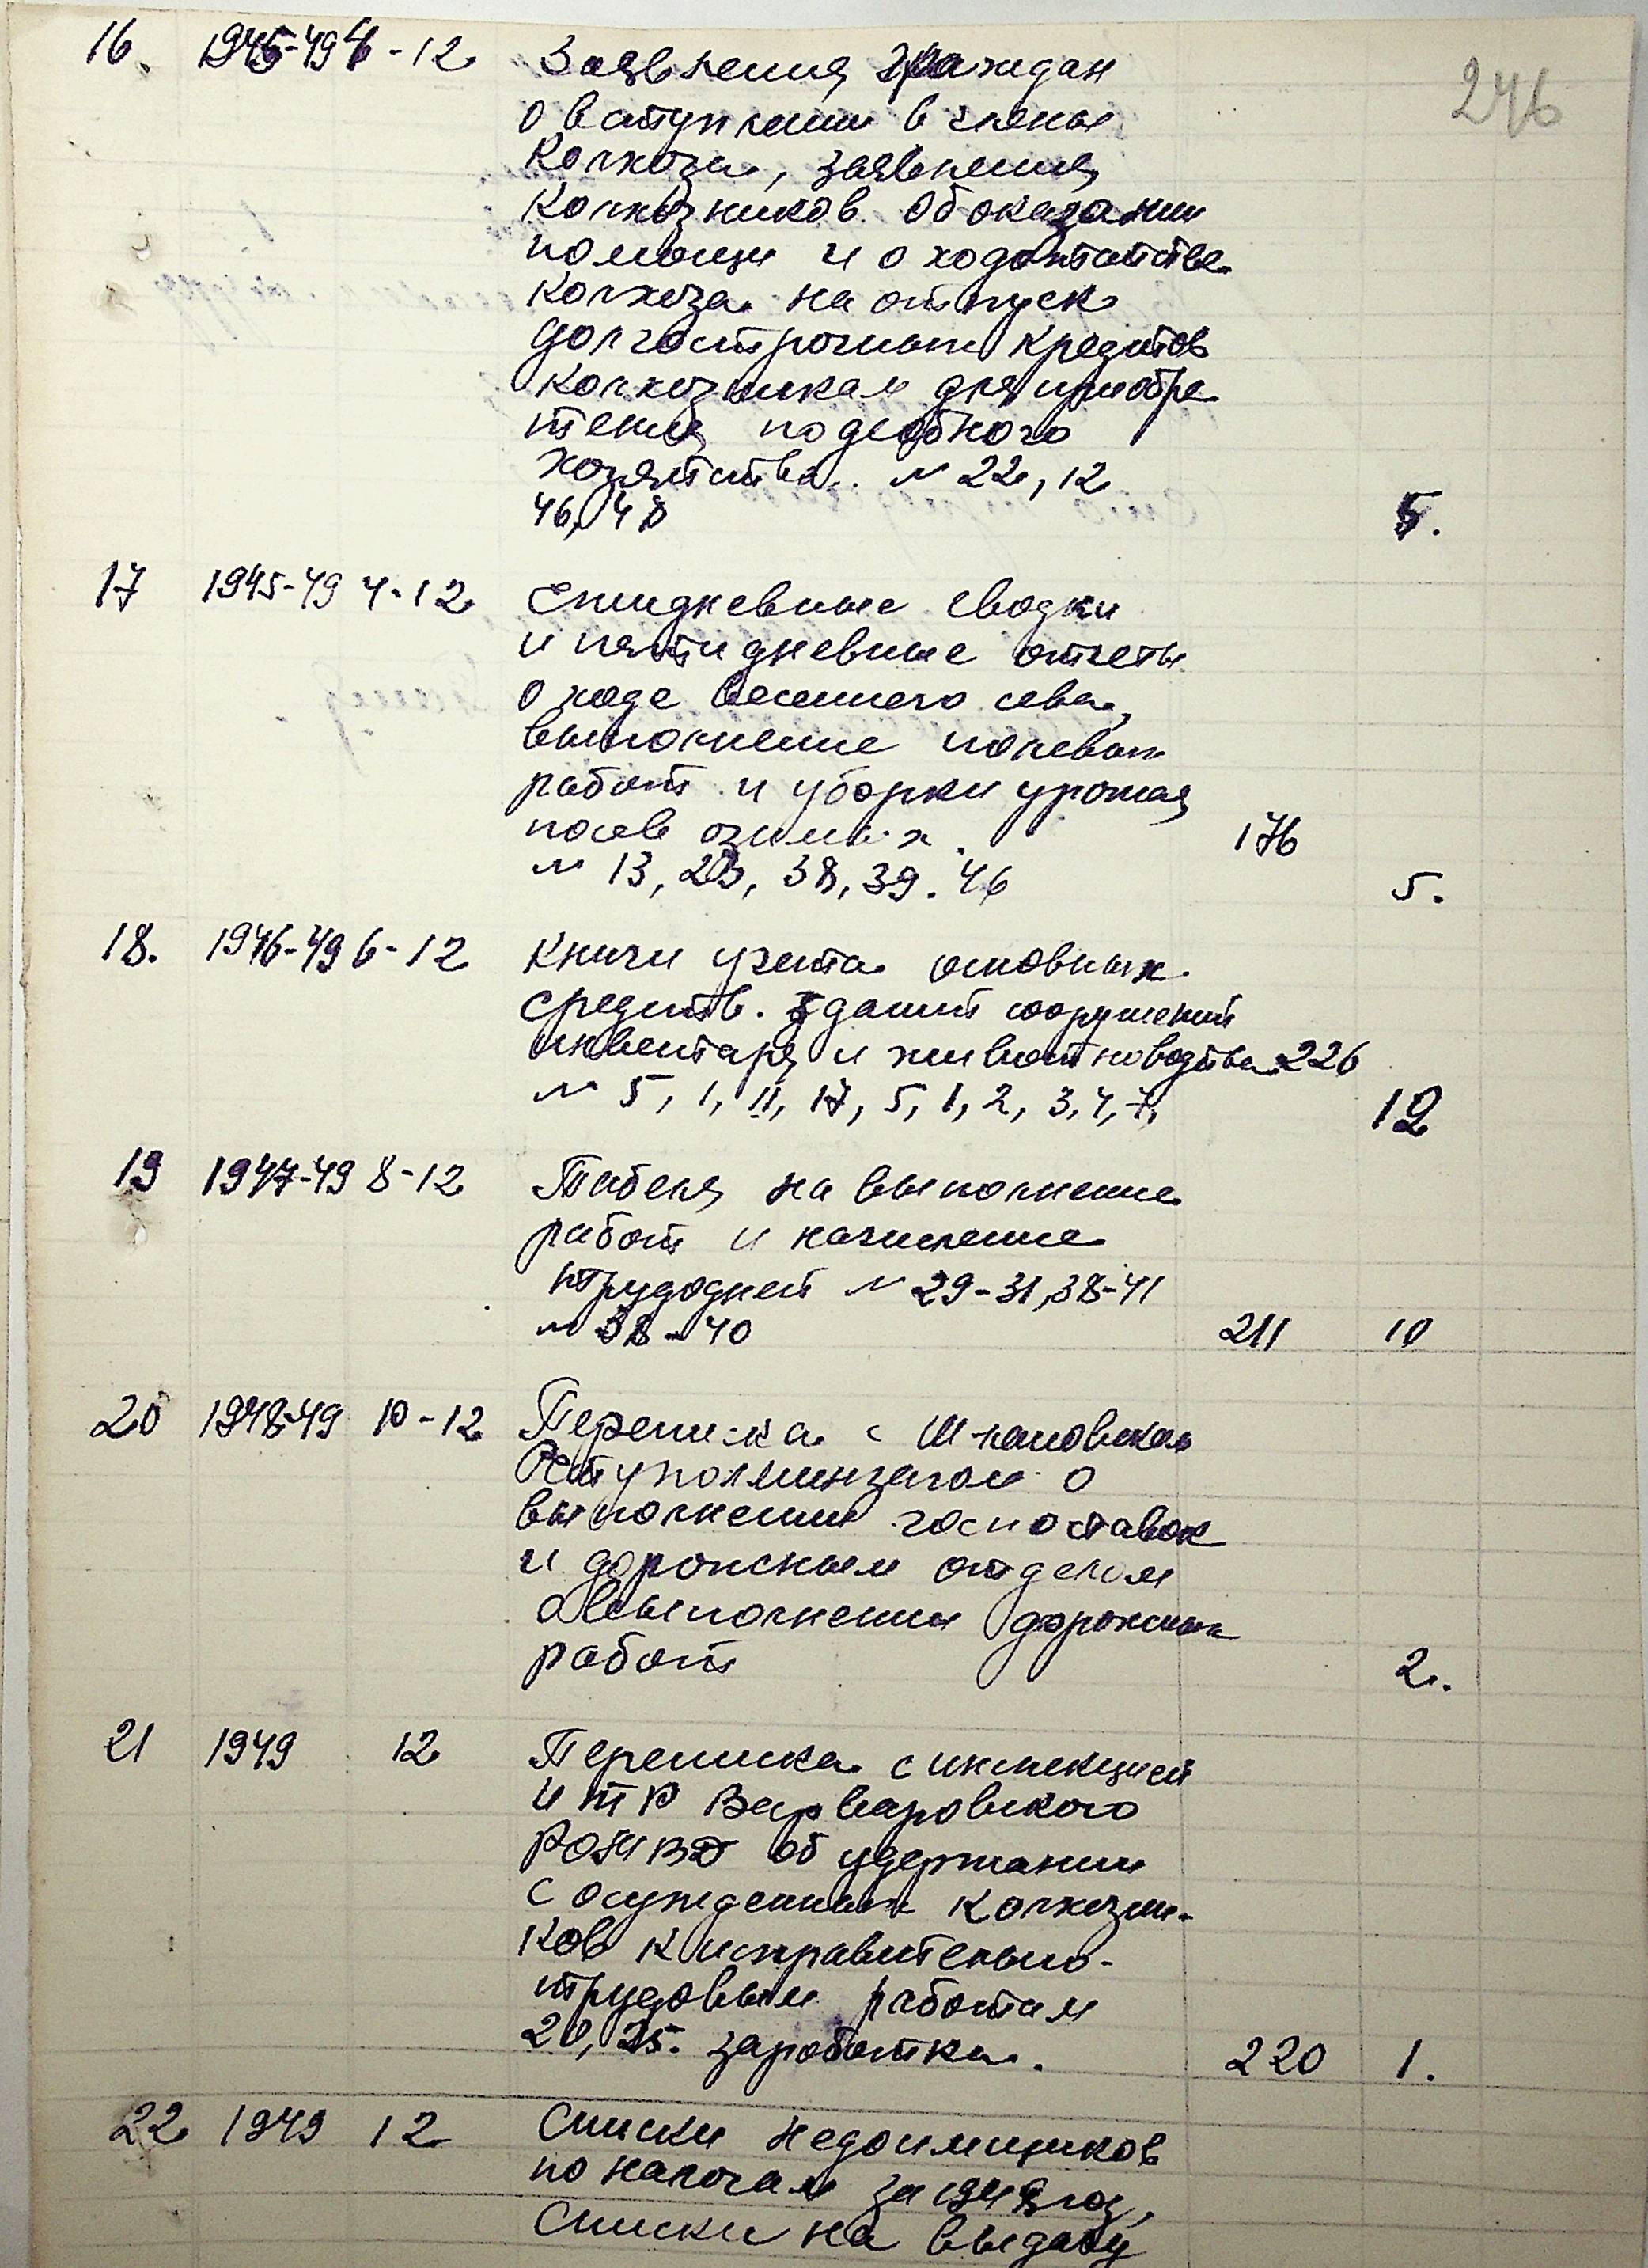 246
16. 1945-49 4-12 Заявления граждан
о вступлении в члены
колхоза, заявления
колхозников об оказании
помощи и о ходатайстве
колхоза на отпуск
долгострочных кредитов
колхозникам для приобре
тения подсобного
хозяйства. N 22, 12
46, 48 5.
17 1945-49 4-12 Ежидневные сводки
и пятидневные отчеты
о ходе весеннего сева,
выполнение полевых
работ и уборки урожая,
посев озимых. 176
N 13, 23, 38, 39. 46 5.
18. 1946-49 6-12 Книги учета основных
средств. зданий сооружений
инвентаря и животноводства 226
N 5, 1, 11, 17, 5, 1, 2, 3, 4, 7, 12
19 1947-49 8-12 Табеля на выполнение
работ и начисление
трудодней N 29-31, 38-41
N 38-40 211 10
20 1948-49 10-12 Переписка с
о
выполнении госпоставок
и дорожным отделом
о выполнении дорожных
работ 2.
21 1949 12 Переписка с инспекцией
ИТР Варваровского
РОМВД об удержании
с осужденных колхозни-
ков к исправительно-
трудовым работам
20, 25. заработка. 220 1.
22 1949 12 Списки недоимщиков
по налогам за 1949 год,
Списки на выдачу